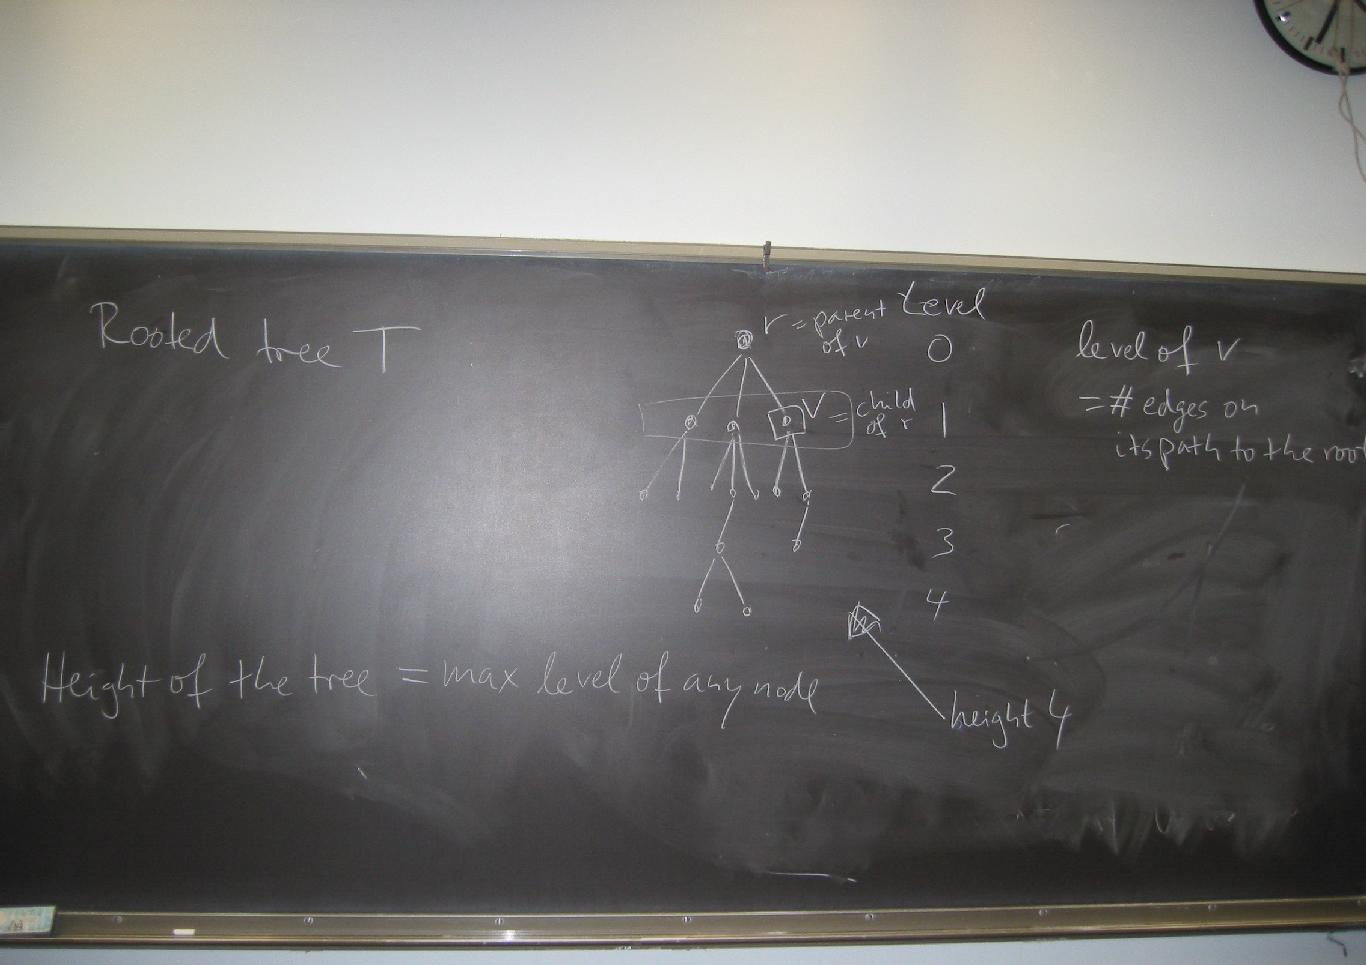 Rooted tree T
r = parent of v
Level
0
V = child of r
1
2
3
4
level of v
= # edges on
its path to the root
Height of the tree = max level of any node
height 4